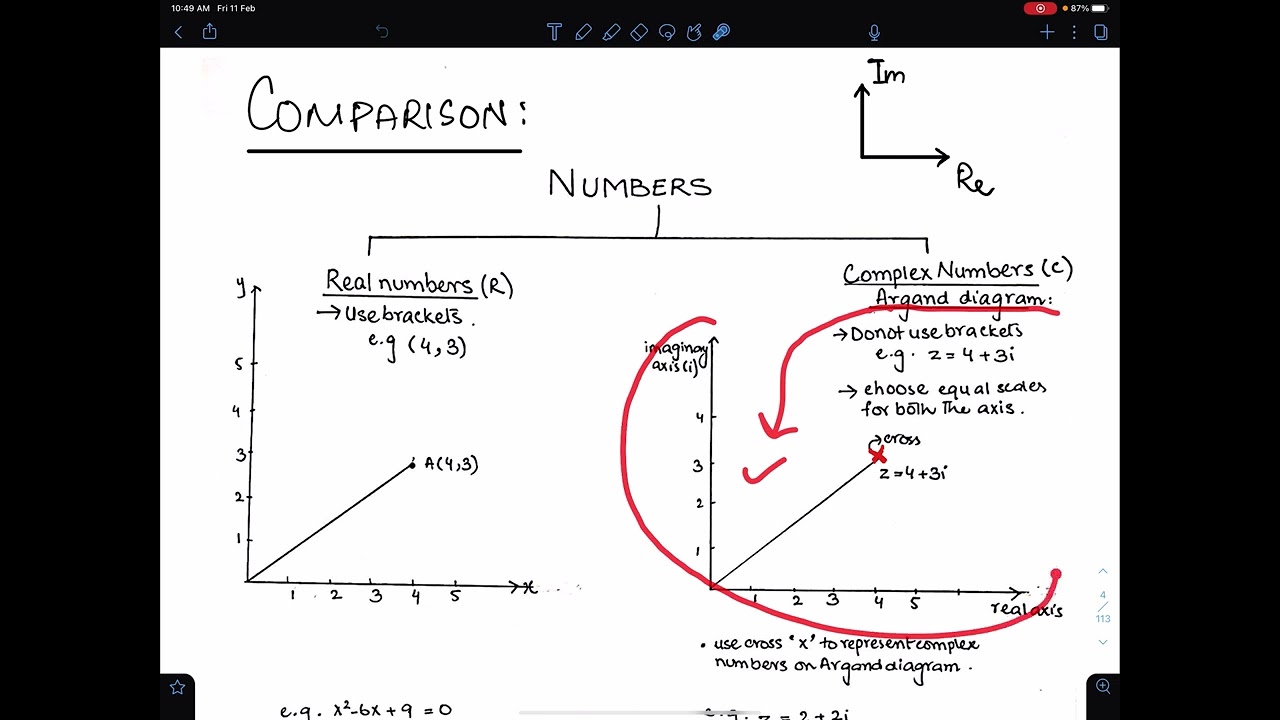 10:49 AM Fri 11 Feb
87%
COMPARISON:
Im
Re
NUMBERS
Real numbers (R)
→ Use brackets.
e.g (4,3)
y
5
4
3
2
1
A(4,3)
1 2 3 4 5
x
Complex Numbers (C)
Argand diagram:
→ Donot use brackets
e.g. z = 4 + 3i
→ choose equal scales
for both the axis.
imaginay
axis(i)
4
3
2
1
cross
z = 4 + 3i
1 2 3 4 5
real axis
• use cross 'x' to represent complex
numbers on Argand diagram.
4
/
113
e.g. x²-6x + 9 = 0
e.g. z = 2 + 2i